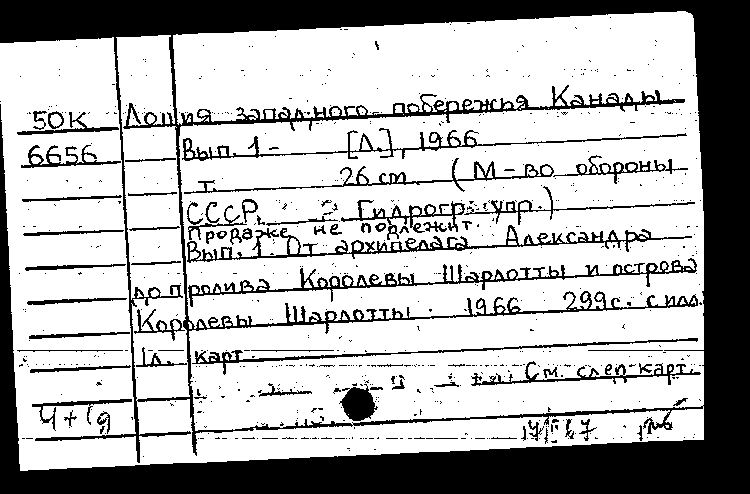 50К Лоция западного побережья Канады
6656 Вып. 1- [Л.], 1966
т. 26 cm. (М-во обороны
СССР. Гидрогр. упр.)
Продаже не подлежит.
Вып. 1. От архипелага Александра
до пролива Королевы Шарлотты и острова
Королевы Шарлотты. 1966 299с. с илл.
1л. карт.
См. след. карт.
Ч+1д